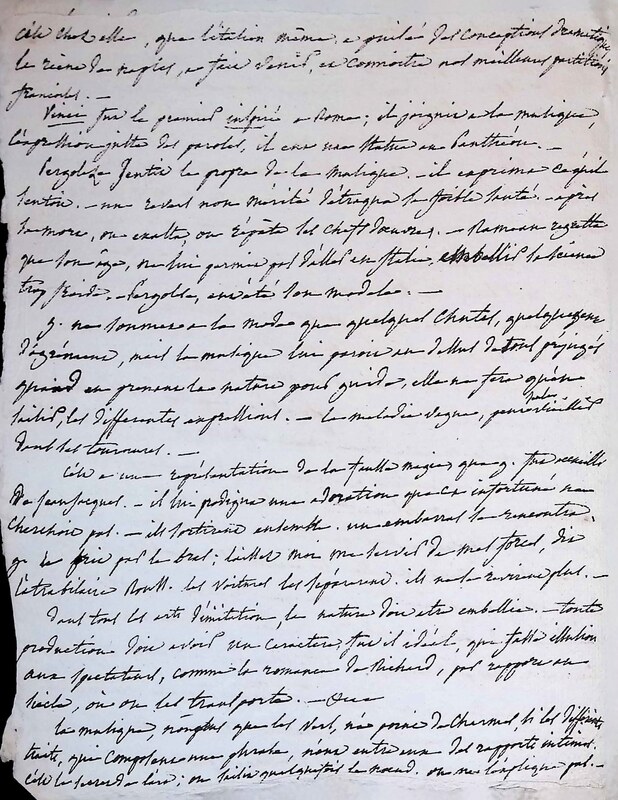 c'est chez elle, que l'italien même, a puisé des conceptions dramatiques
le reine de naples, a fait venir, et connoitre nos meilleurs partitions
francoises. —
Vinci fut le premier inspiré a Rome; il joignit a la musique,
l'expression juste des paroles, il eut une statue au Panthéon. —
Pergolese sentit le propre de la musique. — il exprima ce qu'il
sentoit. — un revers non mérité détraqua sa foible santé. — après
sa mort, on exalta, on répéta ses chefs d'œuvres. — Rameau regretta
que son âge, ne lui permit pas d'aller en italie, embellir sa science
trop froide. — Pergolese, eut été son modele. —
g. ne soumet a la mode que quelques chutes, quelques
d'agrément, mais la musique lui paroit au dessus de tous préjugés
quand en prenant la nature pour guide, elle ne fera qu'en
saisir, les differentes expressions. — la melodie vague,
dans ses tournures. —
C'est a une représentation de la fausse magie, que g. fut accueilli
de jean jacques. — il lui prodigua une adoration que cet infortuné ne
cherchoit pas. — ils sortirent ensemble. un embarras se rencontra.
g. le prit par le bras; laissez moi me servir de mes forces, dit
l'atrabilaire Rouss. les voitures les séparerent. ils ne se revirent plus. —
dans tous les arts d'imitation, la nature doit etre embellie. — toute
production doit avoir un caractere fut il idéal, qui fasse illusion
aux spectateurs, comme la romance de Richard, par rapport au
siecle, où on les transporte. —
la musique, non plus que les vers, n'a point de charmes, si les différents
traits, qui composent une phrase, n'ont entre eux des rapports intimes.
c'est le secret de l'art; on saisit quelquefois le nœud. on ne l'explique pas. —